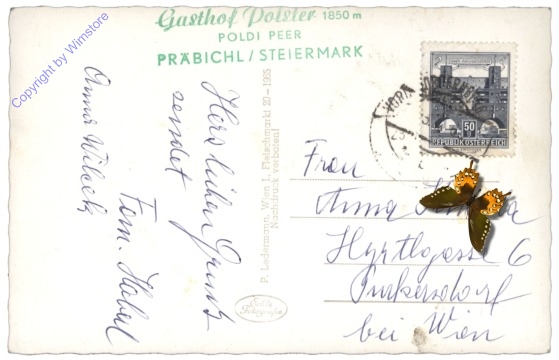 Copyright by Wimstore
Gasthof Polster 1850 m
POLDI PEER
PRÄBICHL / STEIERMARK
Herzlichen Gruß
sendet
Fam. Haberl
Anna
P. Ledermann, Wien I, Fleischmarkt 20 – 1925
Nachdruck verboten!
Echte
Fotografie
50
REPUBLIK ÖSTERREICH
Frau
Anna
Hyrtlgasse 6
Purkersdorf
bei Wien